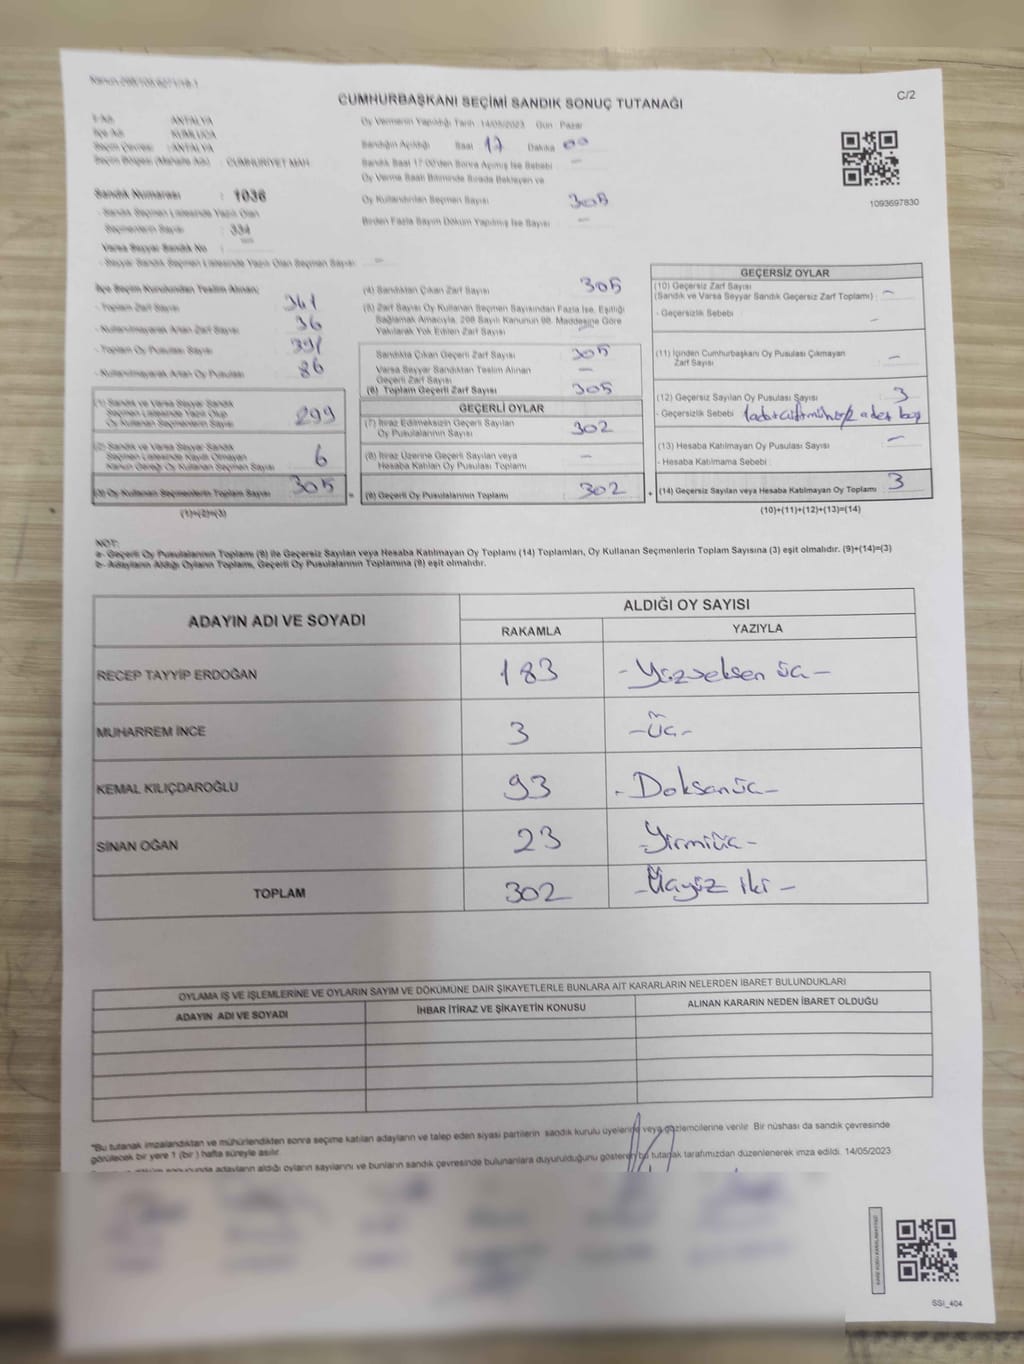 CUMHURBAŞKANI SEÇİMİ SANDIK SONUÇ TUTANAĞI
C/2
İl Adı : ANTALYA
İlçe Adı : KUMLUCA
Seçim Çevresi : ANTALYA
Seçim Bölgesi (Mahalle Adı) : CUMHURİYET MAH
Sandık Numarası : 1036
- Sandık Seçmen Listesinde Yazılı Olan
Seçmenlerin Sayısı : 334
Varsa Seyyar Sandık No
- Seyyar Sandık Seçmen Listesinde Yazılı Olan Seçmen Sayısı : -
Oy Vermenin Yapıldığı Tarih : 14/05/2023 Gün : Pazar
Sandığın Açıldığı Saat 17 Dakika 00
Sandık Saat 17:00'den Sonra Açılmış İse Sebebi -
Oy Verme Saati Bitiminde Sırada Bekleyen ve
Oy Kullandırılan Seçmen Sayısı 305
Birden Fazla Sayım Döküm Yapılmış İse Sayısı -
1093697830
İlçe Seçim Kurulundan Teslim Alınan;
- Toplam Zarf Sayısı 341
- Kullanılmayarak Artan Zarf Sayısı 36
- Toplam Oy Pusulası Sayısı 391
- Kullanılmayarak Artan Oy Pusulası 86
(1) Sandık ve Varsa Seyyar Sandık
Seçmen Listesinde Yazılı Olup
Oy Kullanan Seçmenlerin Sayısı 299
(2) Sandık ve Varsa Seyyar Sandık
Seçmen Listesinde Kayıtlı Olmayan
Kanun Gereği Oy Kullanan Seçmen Sayısı 6
(3) Oy Kullanan Seçmenlerin Toplam Sayısı 305
(1)+(2)=(3)
(4) Sandıktan Çıkan Zarf Sayısı 305
(5) Zarf Sayısı Oy Kullanan Seçmen Sayısından Fazla İse, Eşitliği
Sağlamak Amacıyla, 298 Sayılı Kanunun 98. Maddesine Göre
Yakılarak Yok Edilen Zarf Sayısı -
Sandıkta Çıkan Geçerli Zarf Sayısı 305
Varsa Seyyar Sandıktan Teslim Alınan
Geçerli Zarf Sayısı -
(6) Toplam Geçerli Zarf Sayısı 305
GEÇERLİ OYLAR
(7) İtiraz Edilmeksizin Geçerli Sayılan
Oy Pusulalarının Sayısı 302
(8) İtiraz Üzerine Geçerli Sayılan veya
Hesaba Katılan Oy Pusulası Toplamı -
(9) Geçerli Oy Pusulalarının Toplamı 302
GEÇERSİZ OYLAR
(10) Geçersiz Zarf Sayısı
(Sandık ve Varsa Seyyar Sandık Geçersiz Zarf Toplamı) : -
- Geçersizlik Sebebi -
(11) İçinden Cumhurbaşkanı Oy Pusulası Çıkmayan
Zarf Sayısı -
(12) Geçersiz Sayılan Oy Pusulası Sayısı 3
- Geçersizlik Sebebi
(13) Hesaba Katılmayan Oy Pusulası Sayısı -
- Hesaba Katılmama Sebebi
(14) Geçersiz Sayılan veya Hesaba Katılmayan Oy Toplamı 3
(10)+(11)+(12)+(13)=(14)
NOT:
a- Geçerli Oy Pusulalarının Toplamı (9) ile Geçersiz Sayılan veya Hesaba Katılmayan Oy Toplamı (14) Toplamları, Oy Kullanan Seçmenlerin Toplam Sayısına (3) eşit olmalıdır. (9)+(14)=(3)
b- Adayların Aldığı Oyların Toplamı, Geçerli Oy Pusulalarının Toplamına (9) eşit olmalıdır.
ADAYIN ADI VE SOYADI
ALDIĞI OY SAYISI
RAKAMLA YAZIYLA
RECEP TAYYİP ERDOĞAN 183 - Yüzseksen üç -
MUHARREM İNCE 3 - Üç -
KEMAL KILIÇDAROĞLU 93 - Doksanüç -
SİNAN OĞAN 23 - Yirmiüç -
TOPLAM 302 - Üçyüz iki -
OYLAMA İŞ VE İŞLEMLERİNE VE OYLARIN SAYIM VE DÖKÜMÜNE DAİR ŞİKAYETLERLE BUNLARA AİT KARARLARIN NELERDEN İBARET BULUNDUKLARI
ADAYIN ADI VE SOYADI İHBAR İTİRAZ VE ŞİKAYETİN KONUSU ALINAN KARARIN NEDEN İBARET OLDUĞU
"Bu tutanak imzalandıktan ve mühürlendikten sonra seçime katılan adayların ve talep eden siyasi partilerin sandık kurulu üyelerine veya gözlemcilerine verilir. Bir nüshası da sandık çevresinde
görülecek bir yere 1 (bir) hafta süreyle asılır.
adayların aldığı oyların sayılarını ve bunların sandık çevresinde bulunanlara duyurulduğunu gösteren bu tutanak tarafımızdan düzenlenerek imza edildi. 14/05/2023
SSI_404